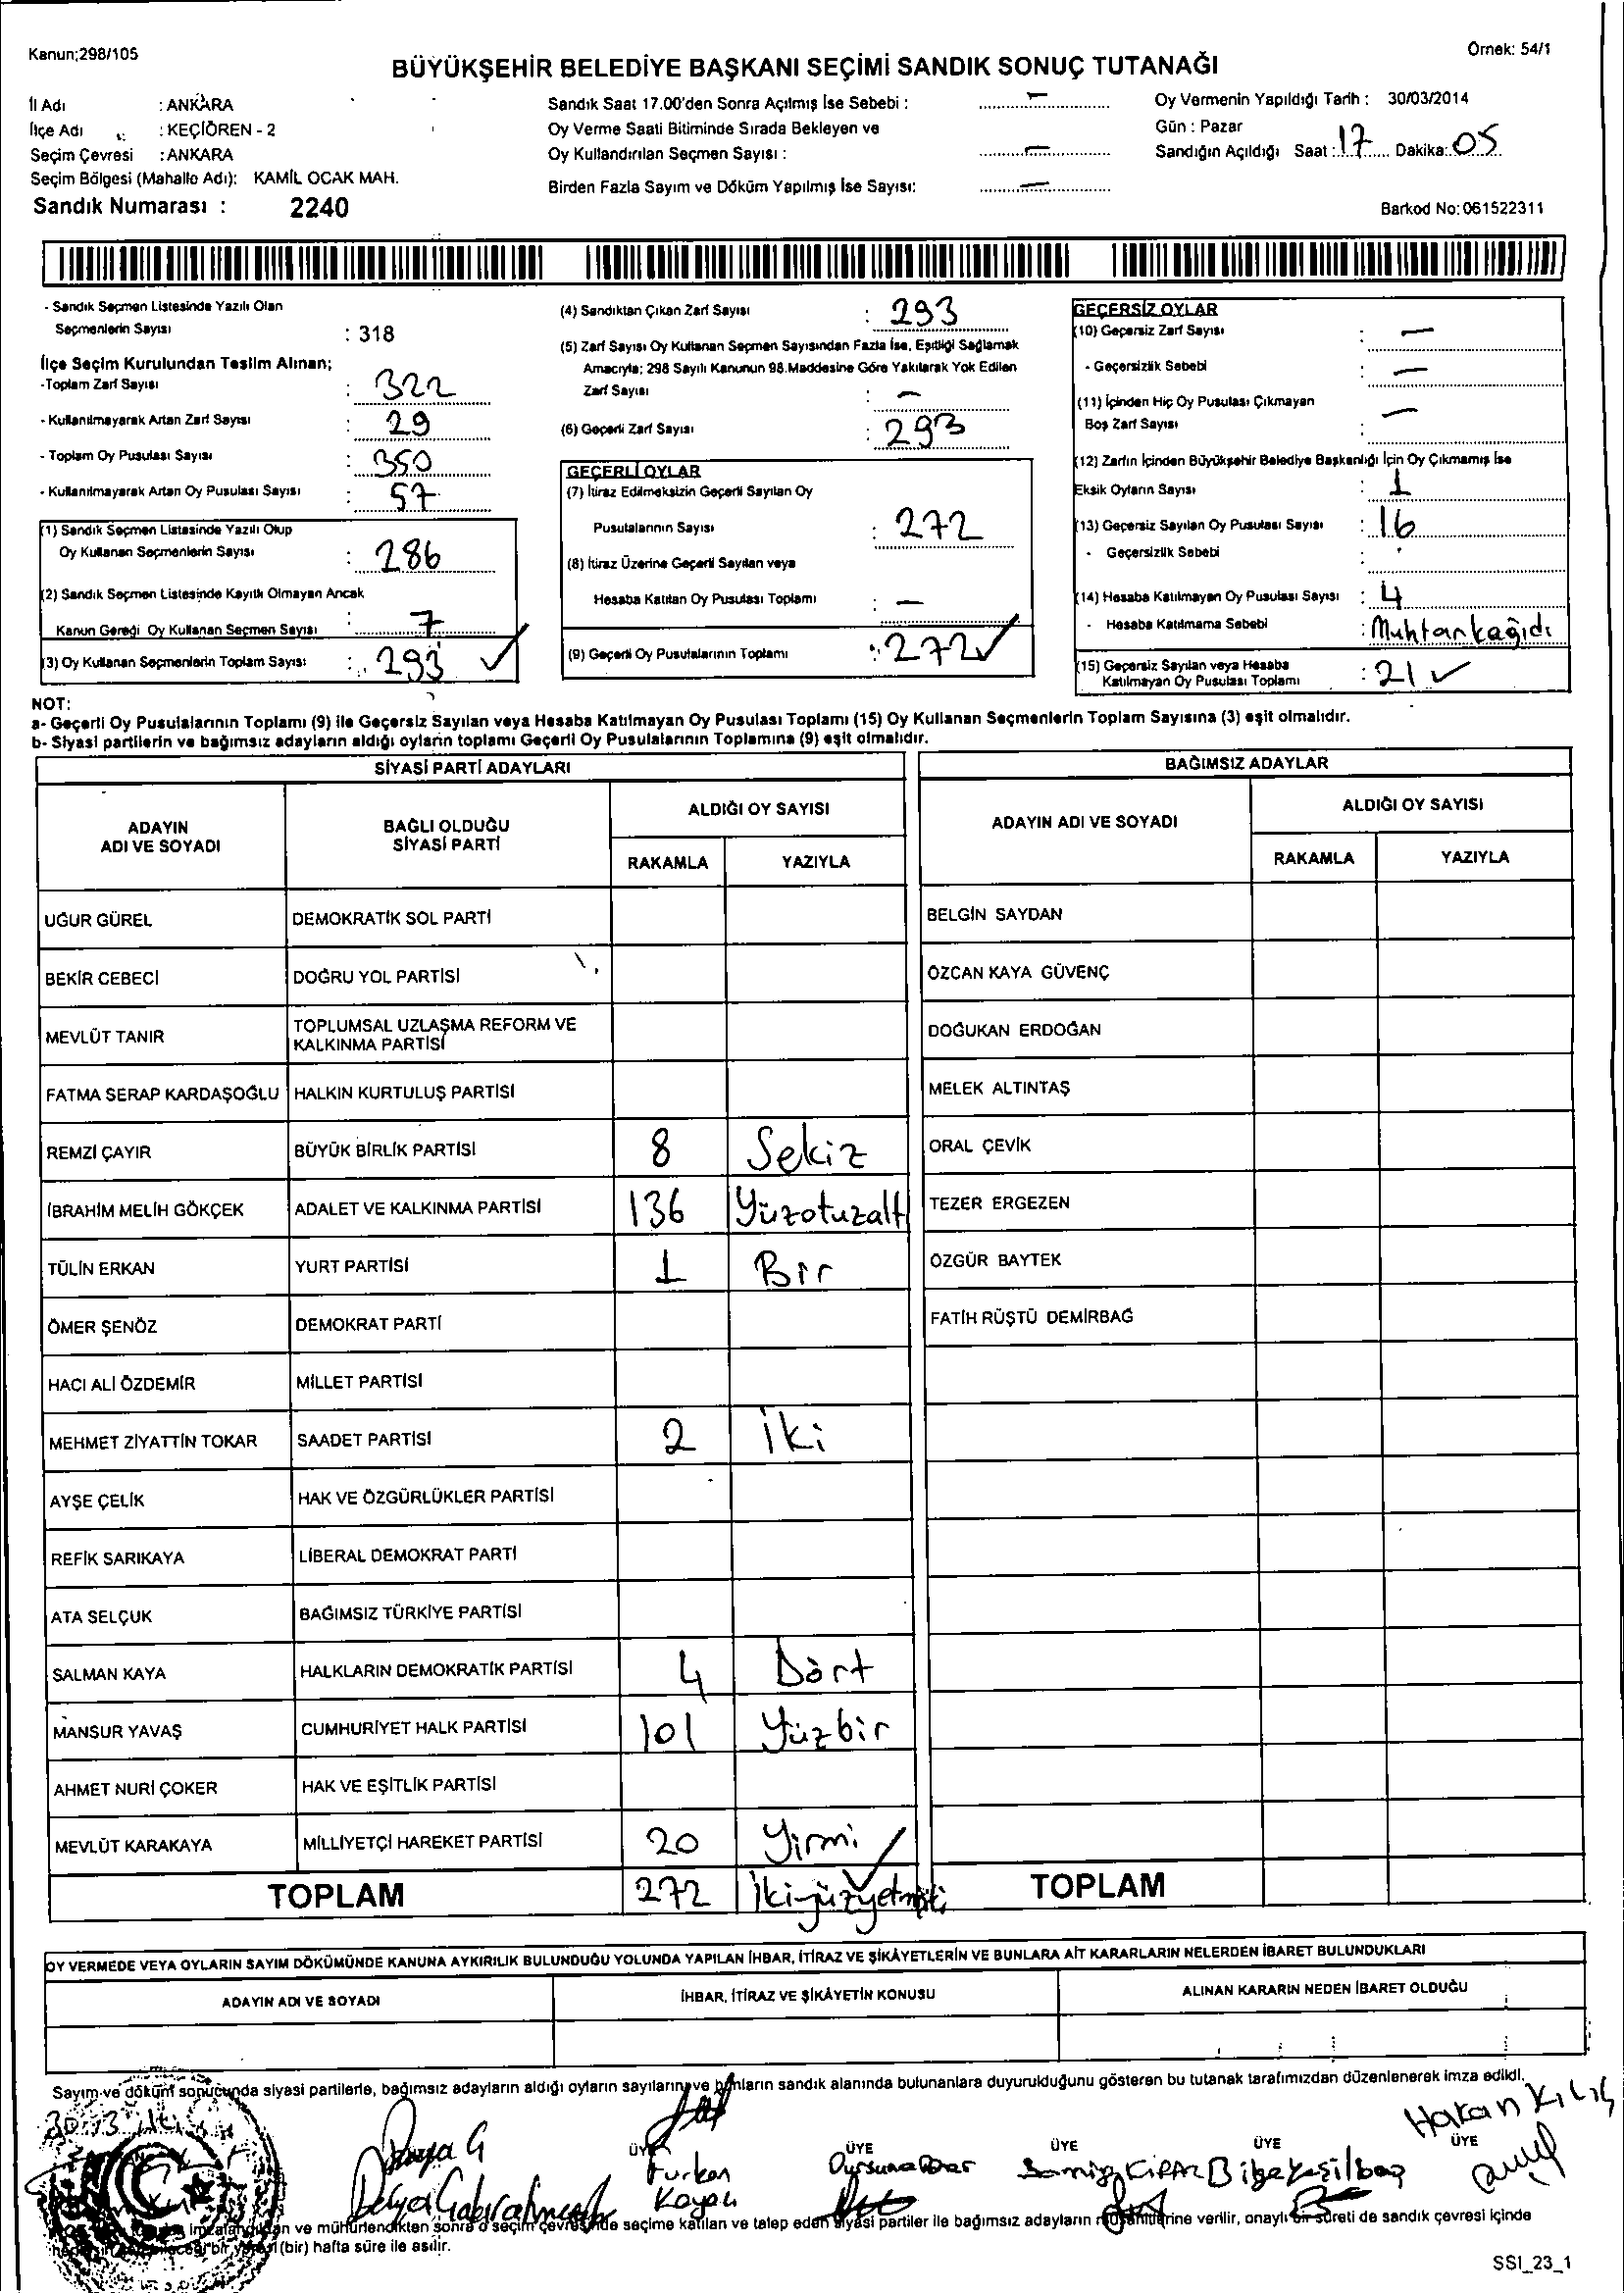 Kanun;298/105
Örnek: 54/1
BÜYÜKŞEHİR BELEDİYE BAŞKANI SEÇİMİ SANDIK SONUÇ TUTANAĞI
İl Adı : ANKARA
İlçe Adı : KEÇİÖREN - 2
Seçim Çevresi : ANKARA
Seçim Bölgesi (Mahalle Adı): KAMİL OCAK MAH.
Sandık Numarası : 2240
Sandık Saat 17.00'den Sonra Açılmış İse Sebebi : —
Oy Verme Saati Bitiminde Sırada Bekleyen ve
Oy Kullandırılan Seçmen Sayısı : —
Birden Fazla Sayım ve Döküm Yapılmış İse Sayısı: —
Oy Vermenin Yapıldığı Tarih : 30/03/2014
Gün : Pazar
Sandığın Açıldığı Saat : 17 Dakika: 05
Barkod No: 061522311
- Sandık Seçmen Listesinde Yazılı Olan
Seçmenlerin Sayısı : 318
İlçe Seçim Kurulundan Teslim Alınan;
-Toplam Zarf Sayısı : 322
- Kullanılmayarak Artan Zarf Sayısı : 29
- Toplam Oy Pusulası Sayısı : 350
- Kullanılmayarak Artan Oy Pusulası Sayısı : 57
(1) Sandık Seçmen Listesinde Yazılı Olup
Oy Kullanan Seçmenlerin Sayısı : 286
(2) Sandık Seçmen Listesinde Kayıtlı Olmayan Ancak
Kanun Gereği Oy Kullanan Seçmen Sayısı : 7
(3) Oy Kullanan Seçmenlerin Toplam Sayısı : 293 ✓
(4) Sandıktan Çıkan Zarf Sayısı : 293
(5) Zarf Sayısı Oy Kullanan Seçmen Sayısından Fazla İse, Eşitliği Sağlamak
Amacıyla; 298 Sayılı Kanunun 98.Maddesine Göre Yakılarak Yok Edilen
Zarf Sayısı : —
(6) Geçerli Zarf Sayısı : 293
GEÇERLİ OYLAR
(7) İtiraz Edilmeksizin Geçerli Sayılan Oy
Pusulalarının Sayısı : 272
(8) İtiraz Üzerine Geçerli Sayılan veya
Hesaba Katılan Oy Pusulası Toplamı : —
(9) Geçerli Oy Pusulalarının Toplamı : 272 ✓
GEÇERSİZ OYLAR
(10) Geçersiz Zarf Sayısı : —
- Geçersizlik Sebebi : —
(11) İçinden Hiç Oy Pusulası Çıkmayan
Boş Zarf Sayısı : —
(12) Zarfın İçinden Büyükşehir Belediye Başkanlığı İçin Oy Çıkmamış İse
Eksik Oyların Sayısı : 1
(13) Geçersiz Sayılan Oy Pusulası Sayısı : 16
- Geçersizlik Sebebi :
(14) Hesaba Katılmayan Oy Pusulası Sayısı : 4
- Hesaba Katılmama Sebebi : Muhtar kağıdı
(15) Geçersiz Sayılan veya Hesaba
Katılmayan Oy Pusulası Toplamı : 21 ✓
NOT:
a- Geçerli Oy Pusulalarının Toplamı (9) ile Geçersiz Sayılan veya Hesaba Katılmayan Oy Pusulası Toplamı (15) Oy Kullanan Seçmenlerin Toplam Sayısına (3) eşit olmalıdır.
b- Siyasi partilerin ve bağımsız adayların aldığı oyların toplamı Geçerli Oy Pusulalarının Toplamına (9) eşit olmalıdır.
SİYASİ PARTİ ADAYLARI
ADAYIN ADI VE SOYADI BAĞLI OLDUĞU SİYASİ PARTİ ALDIĞI OY SAYISI
RAKAMLA YAZIYLA
UĞUR GÜREL DEMOKRATİK SOL PARTİ
BEKİR CEBECİ DOĞRU YOL PARTİSİ
MEVLÜT TANIR TOPLUMSAL UZLAŞMA REFORM VE
KALKINMA PARTİSİ
FATMA SERAP KARDAŞOĞLU HALKIN KURTULUŞ PARTİSİ
REMZİ ÇAYIR BÜYÜK BİRLİK PARTİSİ 8 Sekiz
İBRAHİM MELİH GÖKÇEK ADALET VE KALKINMA PARTİSİ 136 Yüzotuzaltı
TÜLİN ERKAN YURT PARTİSİ 1 Bir
ÖMER ŞENÖZ DEMOKRAT PARTİ
HACI ALİ ÖZDEMİR MİLLET PARTİSİ
MEHMET ZİYATTİN TOKAR SAADET PARTİSİ 2 İki
AYŞE ÇELİK HAK VE ÖZGÜRLÜKLER PARTİSİ
REFİK SARIKAYA LİBERAL DEMOKRAT PARTİ
ATA SELÇUK BAĞIMSIZ TÜRKİYE PARTİSİ
SALMAN KAYA HALKLARIN DEMOKRATİK PARTİSİ 4 Dört
MANSUR YAVAŞ CUMHURİYET HALK PARTİSİ 101 Yüzbir
AHMET NURİ ÇOKER HAK VE EŞİTLİK PARTİSİ
MEVLÜT KARAKAYA MİLLİYETÇİ HAREKET PARTİSİ 20 Yirmi
TOPLAM 272 İkiyüzyetmişiki
BAĞIMSIZ ADAYLAR
ADAYIN ADI VE SOYADI ALDIĞI OY SAYISI
RAKAMLA YAZIYLA
BELGİN SAYDAN
ÖZCAN KAYA GÜVENÇ
DOĞUKAN ERDOĞAN
MELEK ALTINTAŞ
ORAL ÇEVİK
TEZER ERGEZEN
ÖZGÜR BAYTEK
FATİH RÜŞTÜ DEMİRBAĞ
TOPLAM
OY VERMEDE VEYA OYLARIN SAYIM DÖKÜMÜNDE KANUNA AYKIRILIK BULUNDUĞU YOLUNDA YAPILAN İHBAR, İTİRAZ VE ŞİKÂYETLERİN VE BUNLARA AİT KARARLARIN NELERDEN İBARET BULUNDUKLARI
ADAYIN ADI VE SOYADI İHBAR, İTİRAZ VE ŞİKÂYETİN KONUSU ALINAN KARARIN NEDEN İBARET OLDUĞU
Sayım ve döküm sonucunda siyasi partilerle, bağımsız adayların aldığı oyların sayılarını ve bunların sandık alanında bulunanlara duyurulduğunu gösteren bu tutanak tarafımızdan düzenlenerek imza edildi.
Hakan Kılıç
ÜYE ÜYE ÜYE ÜYE ÜYE
Derya G
Furkan
Kayalı
Bilge Yeşilbaş
ve mühürlendikten sonra o seçim çevresinde seçime katılan ve talep eden siyasi partiler ile bağımsız adayların müşahitlerine verilir, onaylı bir sureti de sandık çevresi içinde
(bir) hafta süre ile asılır.
SSI_23_1